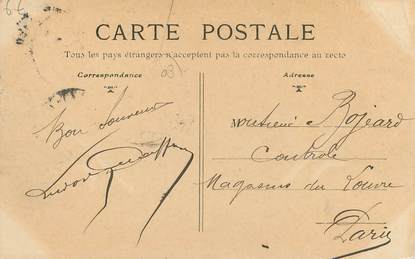 66
CARTE POSTALE
Tous les pays étrangers n'acceptent pas la correspondance au recto
Correspondance
Adresse
Bon Souvenir
Monsieur Bojeard
Controle
Magasins du Louvre
Paris